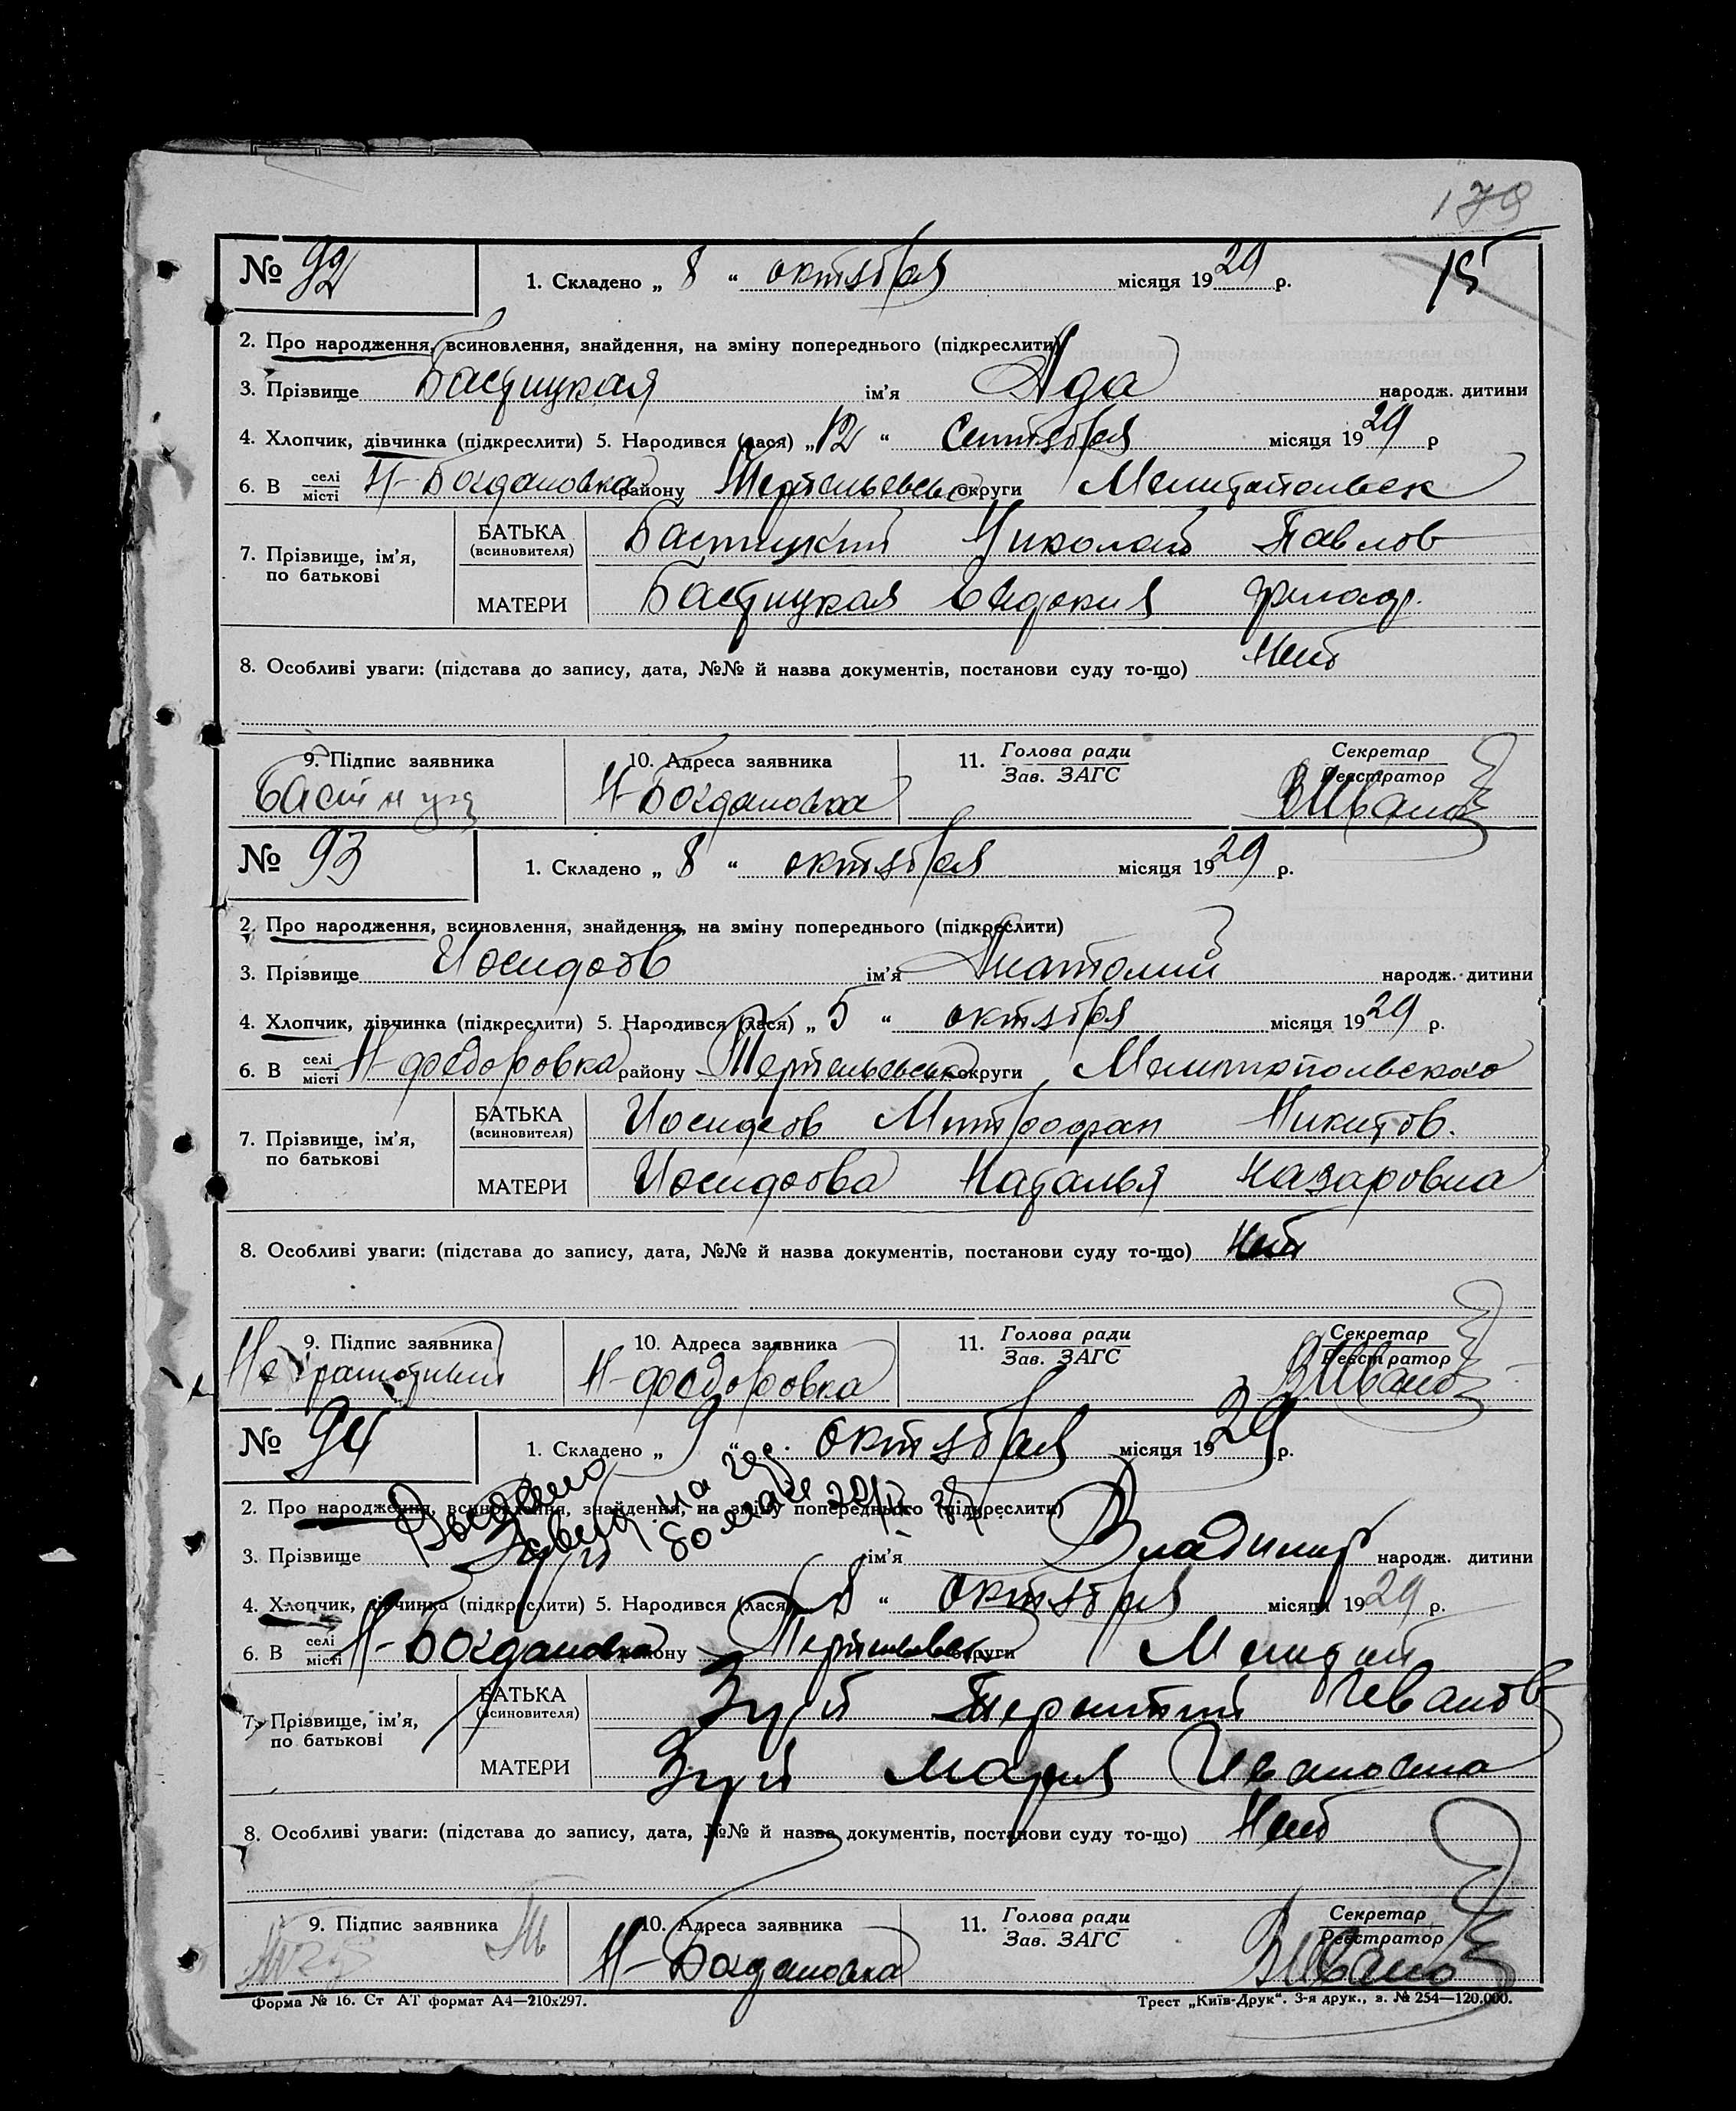 179
15
№ 92 1. Складено „ 8 “ октября місяця 1929 р.
2. Про народження, всиновлення, знайдення, на зміну попереднього (підкреслити)
3. Прізвище Бастицкая ім'я Ада народж. дитини
4. Хлопчик, дівчинка (підкреслити) 5. Народився (лася) „ 12 “ сентября місяця 1929 р
6. В селі місті Н-Богдановка району округи Мелитопольск
7. Прізвище, ім'я, по батькові
БАТЬКА (всиновителя) Бастицкий Николай Павлов
МАТЕРИ Бастицкая Евдокия
8. Особливі уваги: (підстава до запису, дата, №№ й назва документів, постанови суду то-що) Нет
9. Підпис заявника 10. Адреса заявника 11. Голова ради Зав. ЗАГС Секретар Реєстратор
Н-Богдановка
№ 93 1. Складено „ 8 “ октября місяця 1929 р.
2. Про народження, всиновлення, знайдення, на зміну попереднього (підкреслити)
3. Прізвище ім'я Анатолий народж. дитини
4. Хлопчик, дівчинка (підкреслити) 5. Народився (лася) „ 5 “ октября місяця 1929 р.
6. В селі місті Н-Федоровка району округи Мелитопольского
7. Прізвище, ім'я, по батькові
БАТЬКА (всиновителя) Митрофан Никитов.
МАТЕРИ Наталья Назаровна
8. Особливі уваги: (підстава до запису, дата, №№ й назва документів, постанови суду то-що) Нет
9. Підпис заявника 10. Адреса заявника 11. Голова ради Зав. ЗАГС Секретар Реєстратор
Неграмотный Н-Федоровка
№ 94 1. Складено „ 9 “ октября місяця 1929 р.
2. Про народження, всиновлення, знайдення, на зміну попереднього (підкреслити)
3. Прізвище Зуй ім'я Владимир народж. дитини
4. Хлопчик, дівчинка (підкреслити) 5. Народився (лася) 8 “ октября місяця 1929 р.
6. В селі місті Н-Богдановка району округи
7. Прізвище, ім'я, по батькові
БАТЬКА (всиновителя) Зуй Терентий Иванов
МАТЕРИ Зуй Мария Ивановна
8. Особливі уваги: (підстава до запису, дата, №№ й назва документів, постанови суду то-що) Нет
9. Підпис заявника 10. Адреса заявника 11. Голова ради Зав. ЗАГС Секретар Реєстратор
Н-Богдановка
Форма № 16. Ст АТ формат А4—210х297. Трест „Київ-Друк“. 3-я друк., з. № 254—120.000.